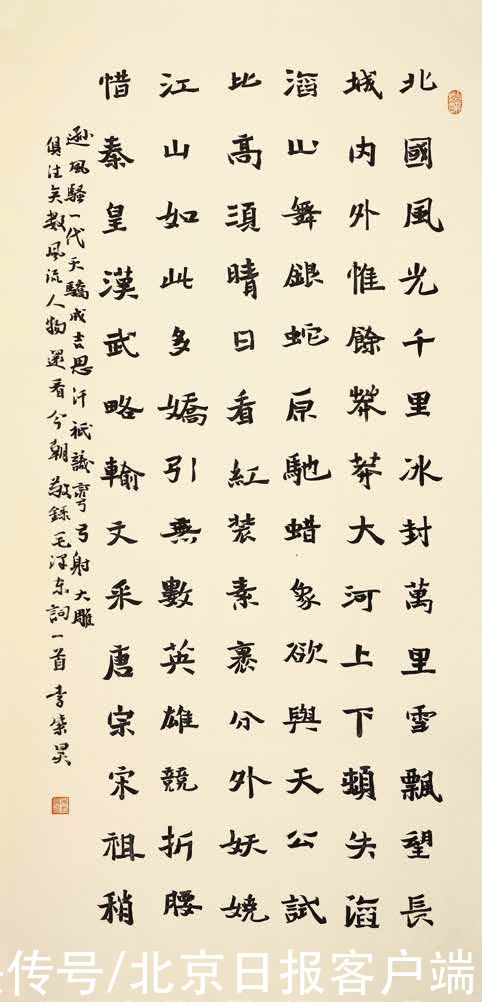 北國風光千里冰封萬里雪飄望長
城内外惟餘莽莽大河上下頓失滔
滔山舞銀蛇原馳蜡象欲與天公試
比高須晴日看紅装素裹分外妖嬈
江山如此多嬌引無數英雄競折腰
惜秦皇漢武略輸文采唐宗宋祖稍
遜風騷一代天驕成吉思汗祇識彎弓射大雕
俱往矣數風流人物還看今朝敬録毛澤東詞一首 李
传号/北京日报客户端